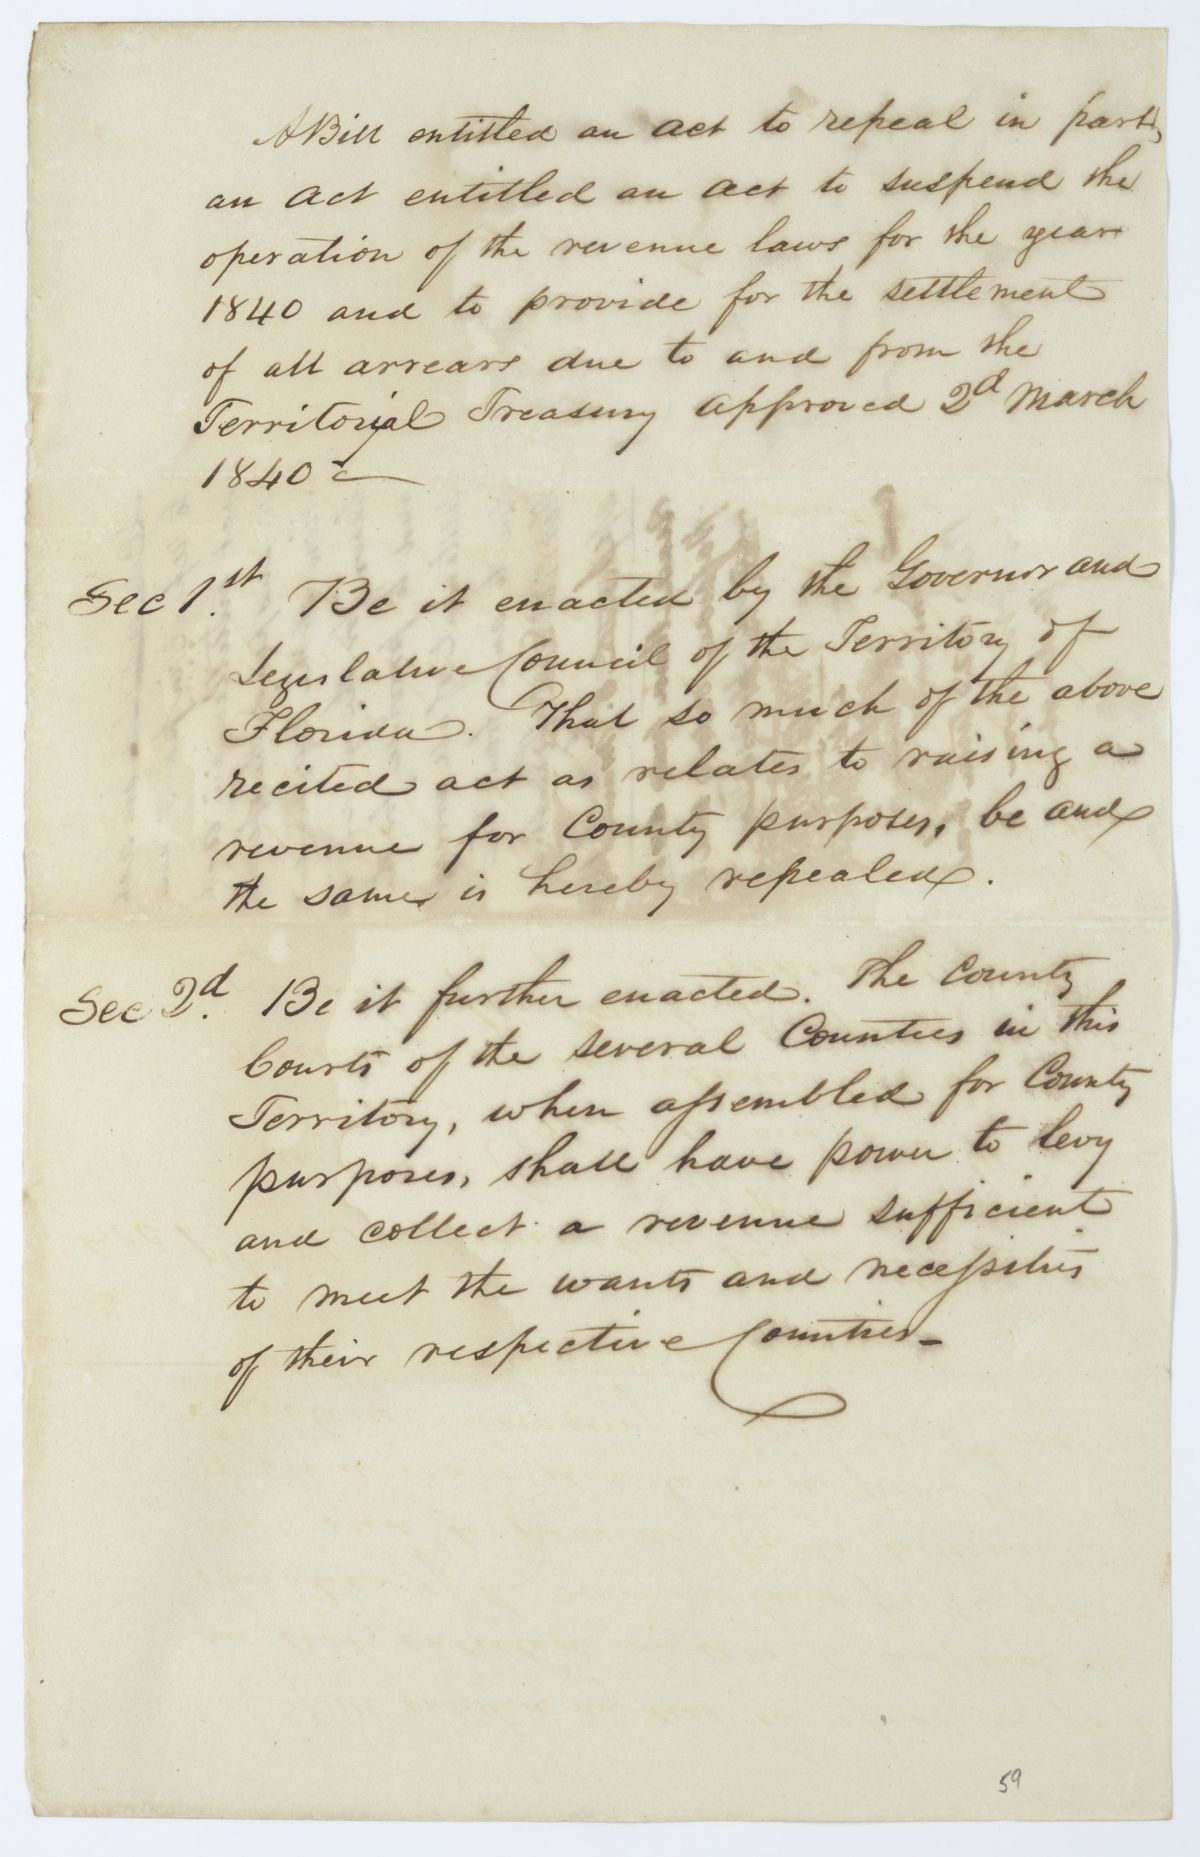 A Bill entitled an act to repeal in part,
an act entitled an act to suspend the
operation of the revenue laws for the year
1840 and to provide for the settlement
of all arrears due to and from the
Territorial Treasury approved 2d March
1840
Sec 1st. Be it enacted by the Governor and
Legislative Council of the Territory of
Florida. That so much of the above
recited act as relates to raising a
revenue for County purposes, be and
the same is hereby repealed.
Sec 2d. Be it further enacted. The County
Courts of the several Counties in this
Territory, when assembled for County
purposes, shall have power to levy
and collect a revenue sufficient
to meet the wants and necessities
of their respective Counties-
59